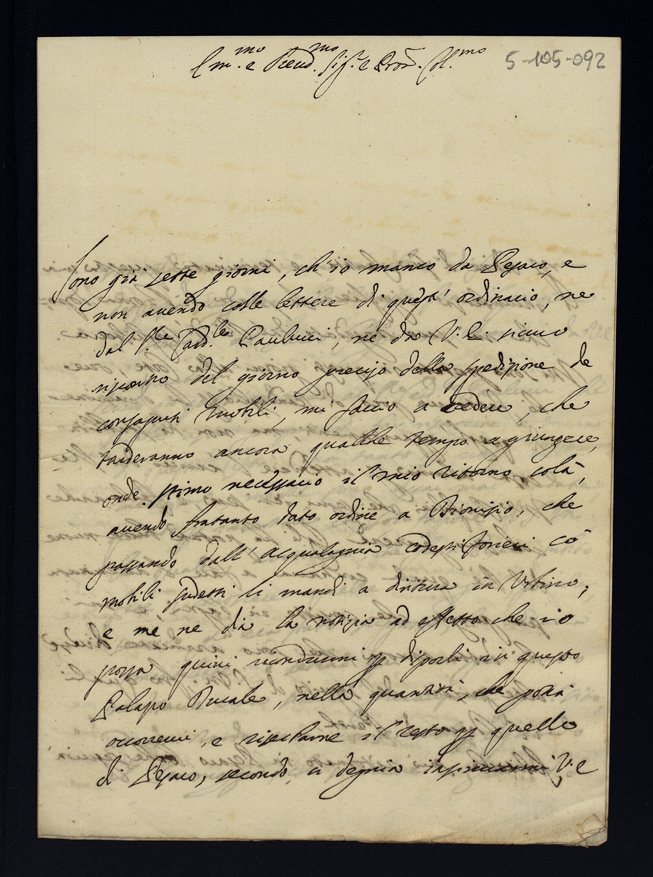 Em.mo e Reud.mo Sig.r e Pron. Col.mo
5-105-092
Sono già sette giorni, ch'io manco da Pesaro, e
non auendo colle lettere di quest' ordinario, ne
dal S.re Card.le Paulucci, ne da V. E. niuno
riscontro del giorno preciso della spedizione de
consaputi mobili, mi faccio a credere, che
tarderanno ancora qualche tempo a giungere,
onde stimo necessario il mio ritorno colà,
auendo fratanto dato ordine a Dionisio, che
passando dall' Acqualagna codesti forieri cō
mobili sudetti li mandi a dirittura in Urbino,
e me ne dia la notizia ad effetto che io
possa quiui rendermi p disporli in questo
Palazzo Ducale, nella quantità, che potrà
occorrerui, e riserbarne il resto p quello
di Pesaro, secondo si degnia V. E.